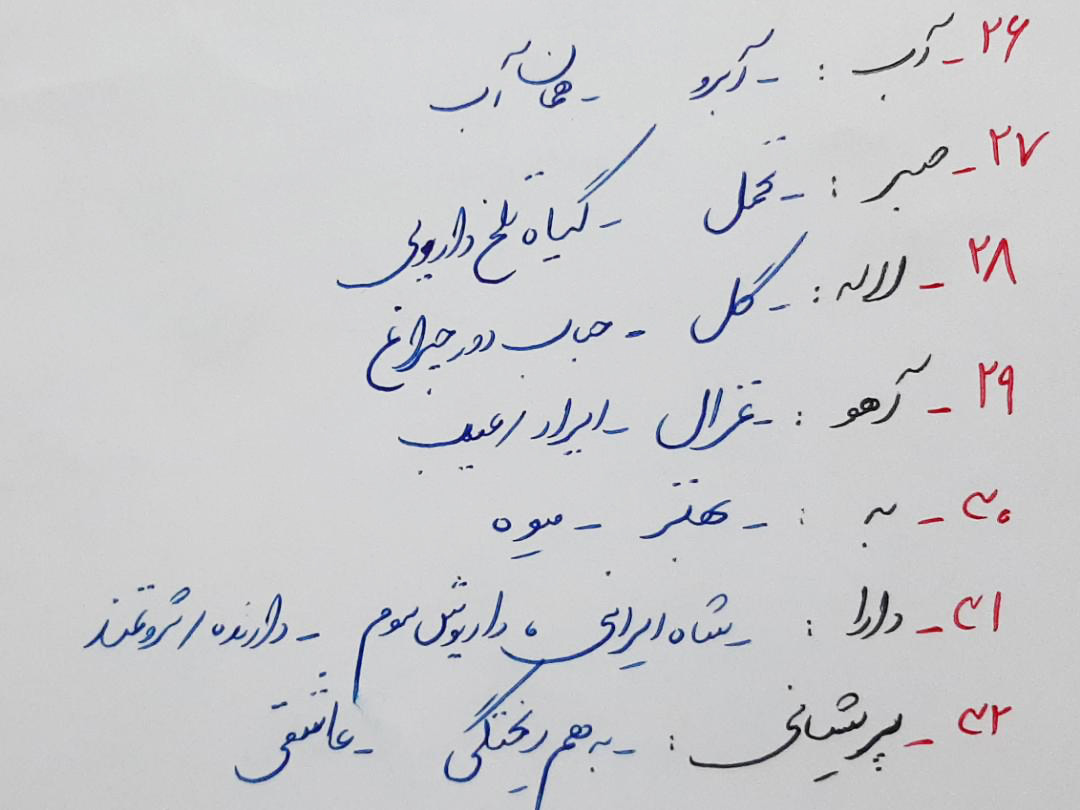 ۲۶ـ آب : ـ آبرو ـ همان آب
۲۷ـ صبر : ـ تحمل ـ گیاه تلخ دارویی
۲۸ـ لاله : ـ گل ـ حباب دور چراغ
۲۹ـ آهو : ـ غزال ـ ایراد / عیب
۳۰ـ به : ـ بهتر ـ میوه
۳۱ـ دارا : ـ شاه ایرانی ، داریوش سوم ـ دارنده / ثروتمند
۳۲ـ پریشانی : ـ به هم ریختگی ـ عاشقی